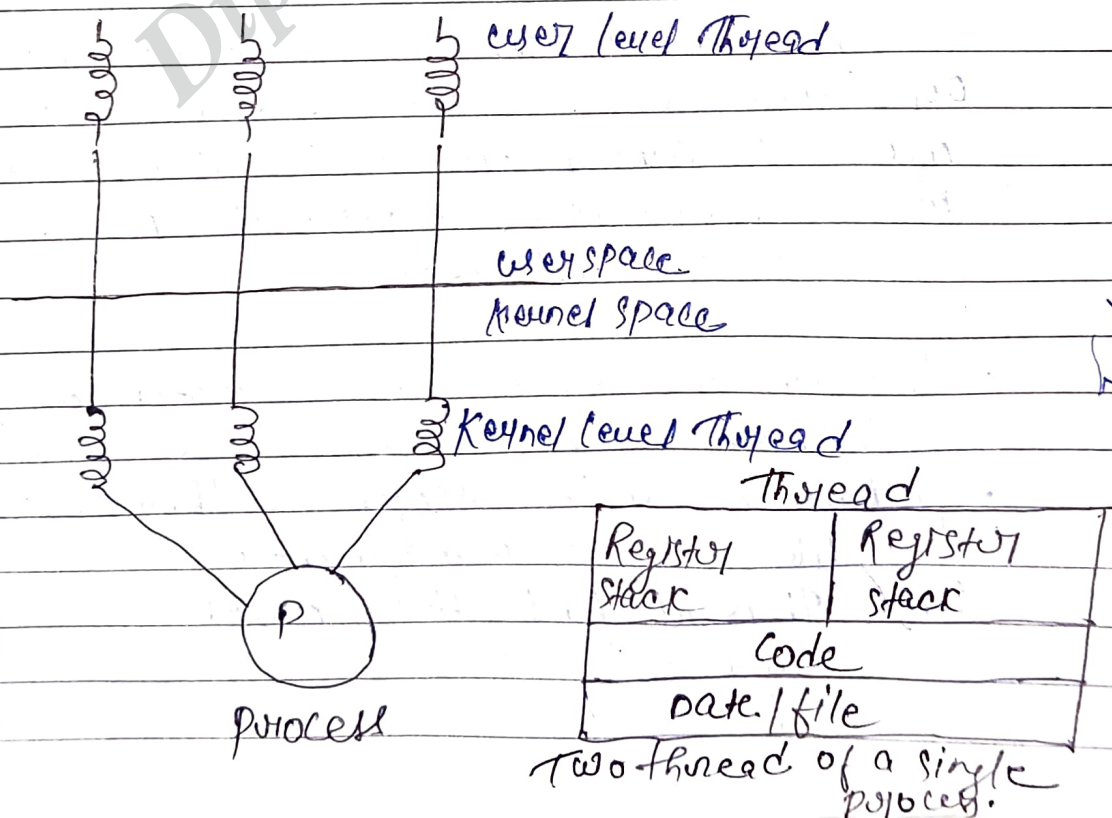 user level Thread
userspace
kernel space
Kernel level Thread
Thread
Register Register
stack stack
Code
Date/file
P
process
Two thread of a single
process.